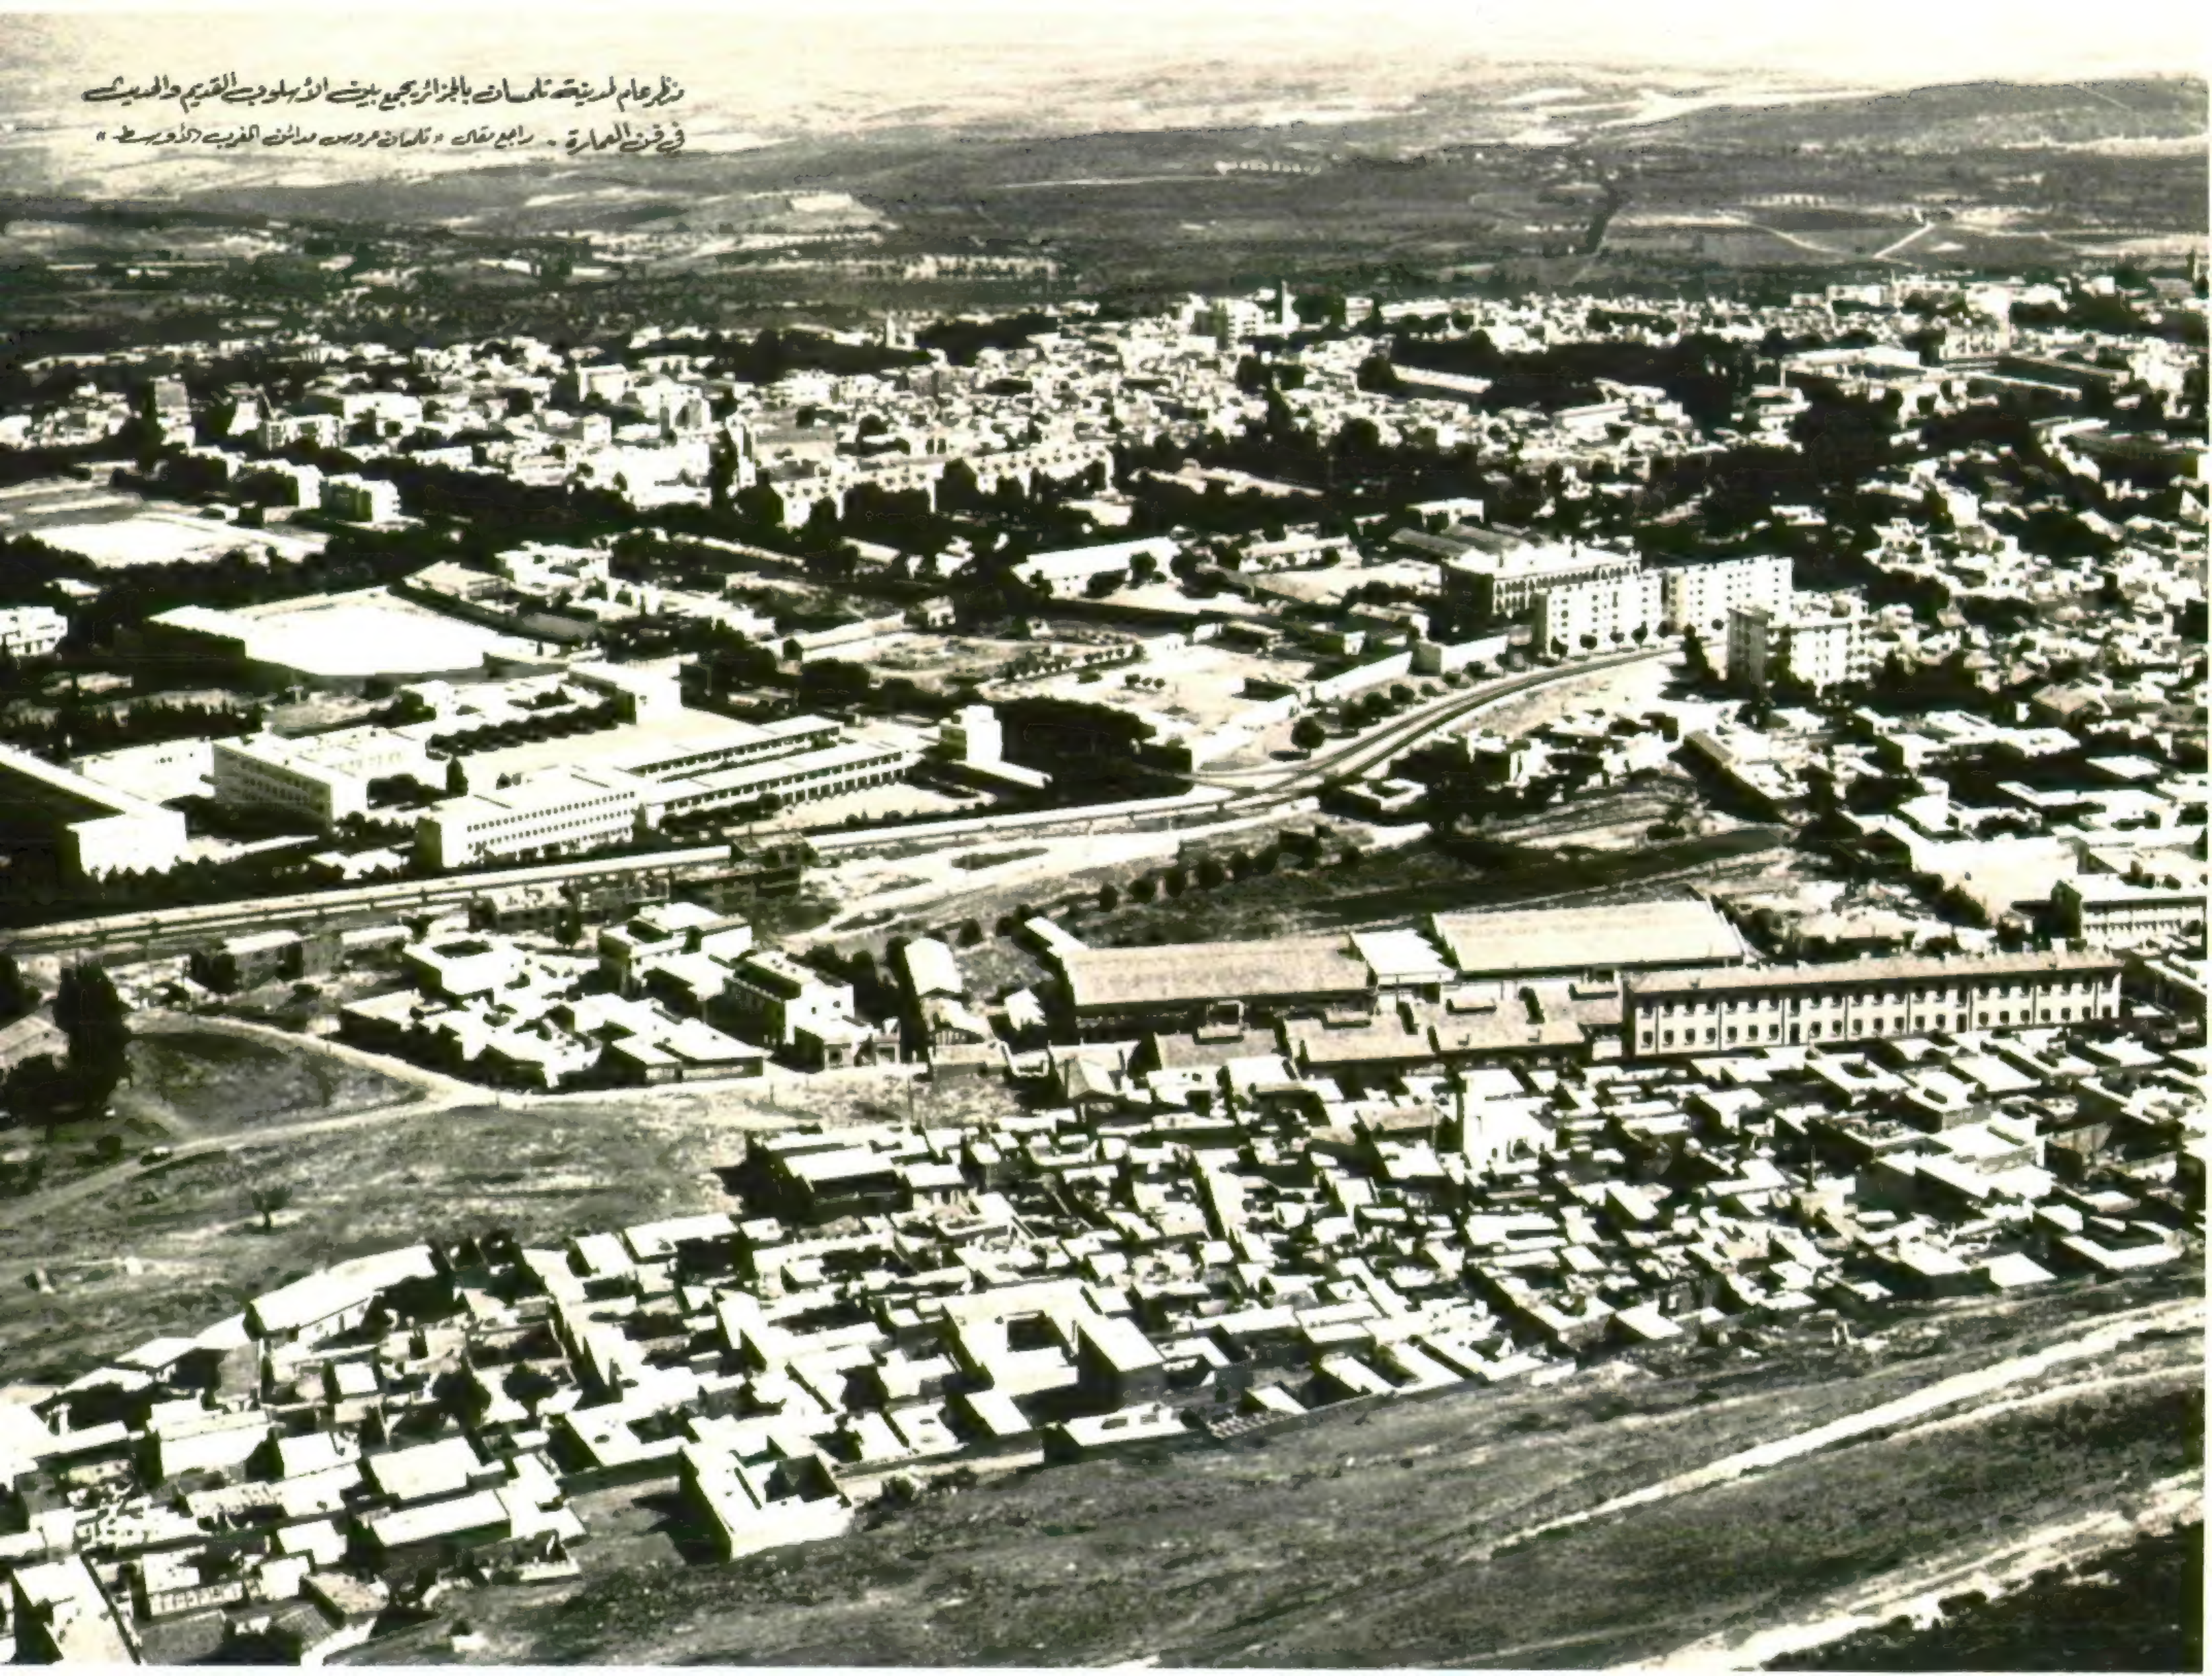 منظر عام لمدينة تلمسان بالجزائر يجمع بين الأسلوب القديم والحديث
في فن العمارة . راجع مقال « تلمسان عروس مدائن المغرب الأوسط »